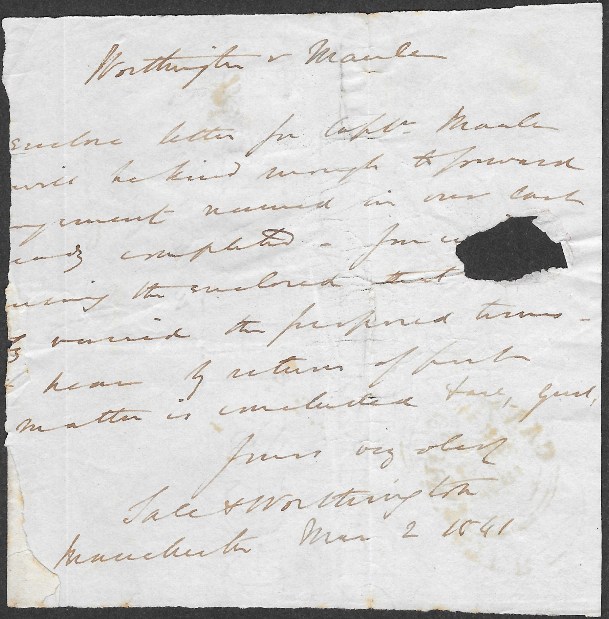 Worthington v Maule
enclose letter for Captn. Maule
will be kind enough to forward
agreement named in our last
ready completed - You w
using the enclosed that
varied the proposed terms -
hear by return of post
matter is concluded
Yours very obedt
Sale & Worthington
Manchester Mar 2 1841